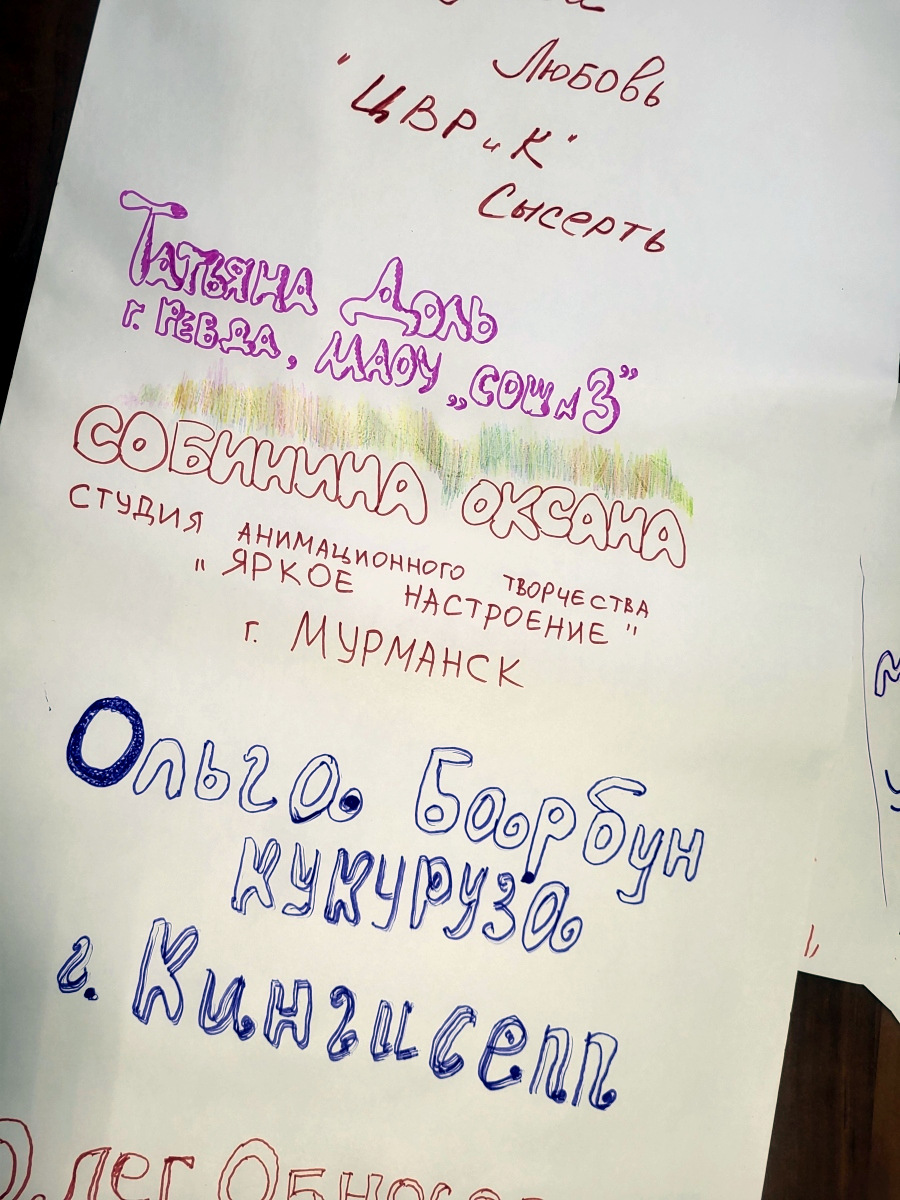 Любовь
"ЦВР и К"
Сысерть
Татьяна Доль
г. Ревда, МАОУ „СОШ №3”
СОБИНИНА ОКСАНА
СТУДИЯ АНИМАЦИОННОГО ТВОРЧЕСТВА
"ЯРКОЕ НАСТРОЕНИЕ"
г. МУРМАНСК
Ольга Барбун
КУКУРУЗА
г. Кингисепп
Олег